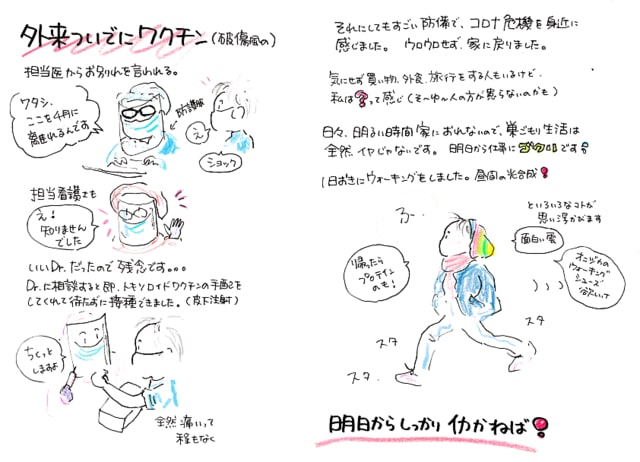 外来ついでにワクチン(破傷風の)
担当医からお別れを言われる。
ワタシ、
ここを4月に
離れるんです
防護服
え
ショック
担当看護士も
え!
知りません
でした
いいDr.だったので残念です。。。
Dr.に相談すると即、トキソイドワクチンの手配を
してくれて待たずに接種できました。(皮下注射)
ちくっと
しますよ
全然痛いって
程もなく
それにしてもすごい防備で、コロナ危機を身近に
感じました。ウロウロせず、家に戻りました。
気にせず買い物、外食、旅行をする人もいるけど、
私は?って感じ(そ〜ゆ〜人の方が罹らないのかも)
日々、明るい時間家におれないので、巣ごもり生活は
全然イヤじゃないです。明日から仕事に
です
1日おきにウォーキングをしました。昼間の光合成!
ろー..
といろいろなコトが
思い浮かびます
面白い雲
帰ったら
プロテイン
のも!
オニヅカの
ウォーキング
シューズ
欲しいナ
スタ
スタ
スタ
明日からしっかりイカかねば!